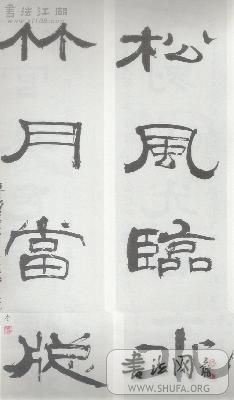 松風臨水
竹月當
書法江湖
書法网
WWW.SHUFA.ORG